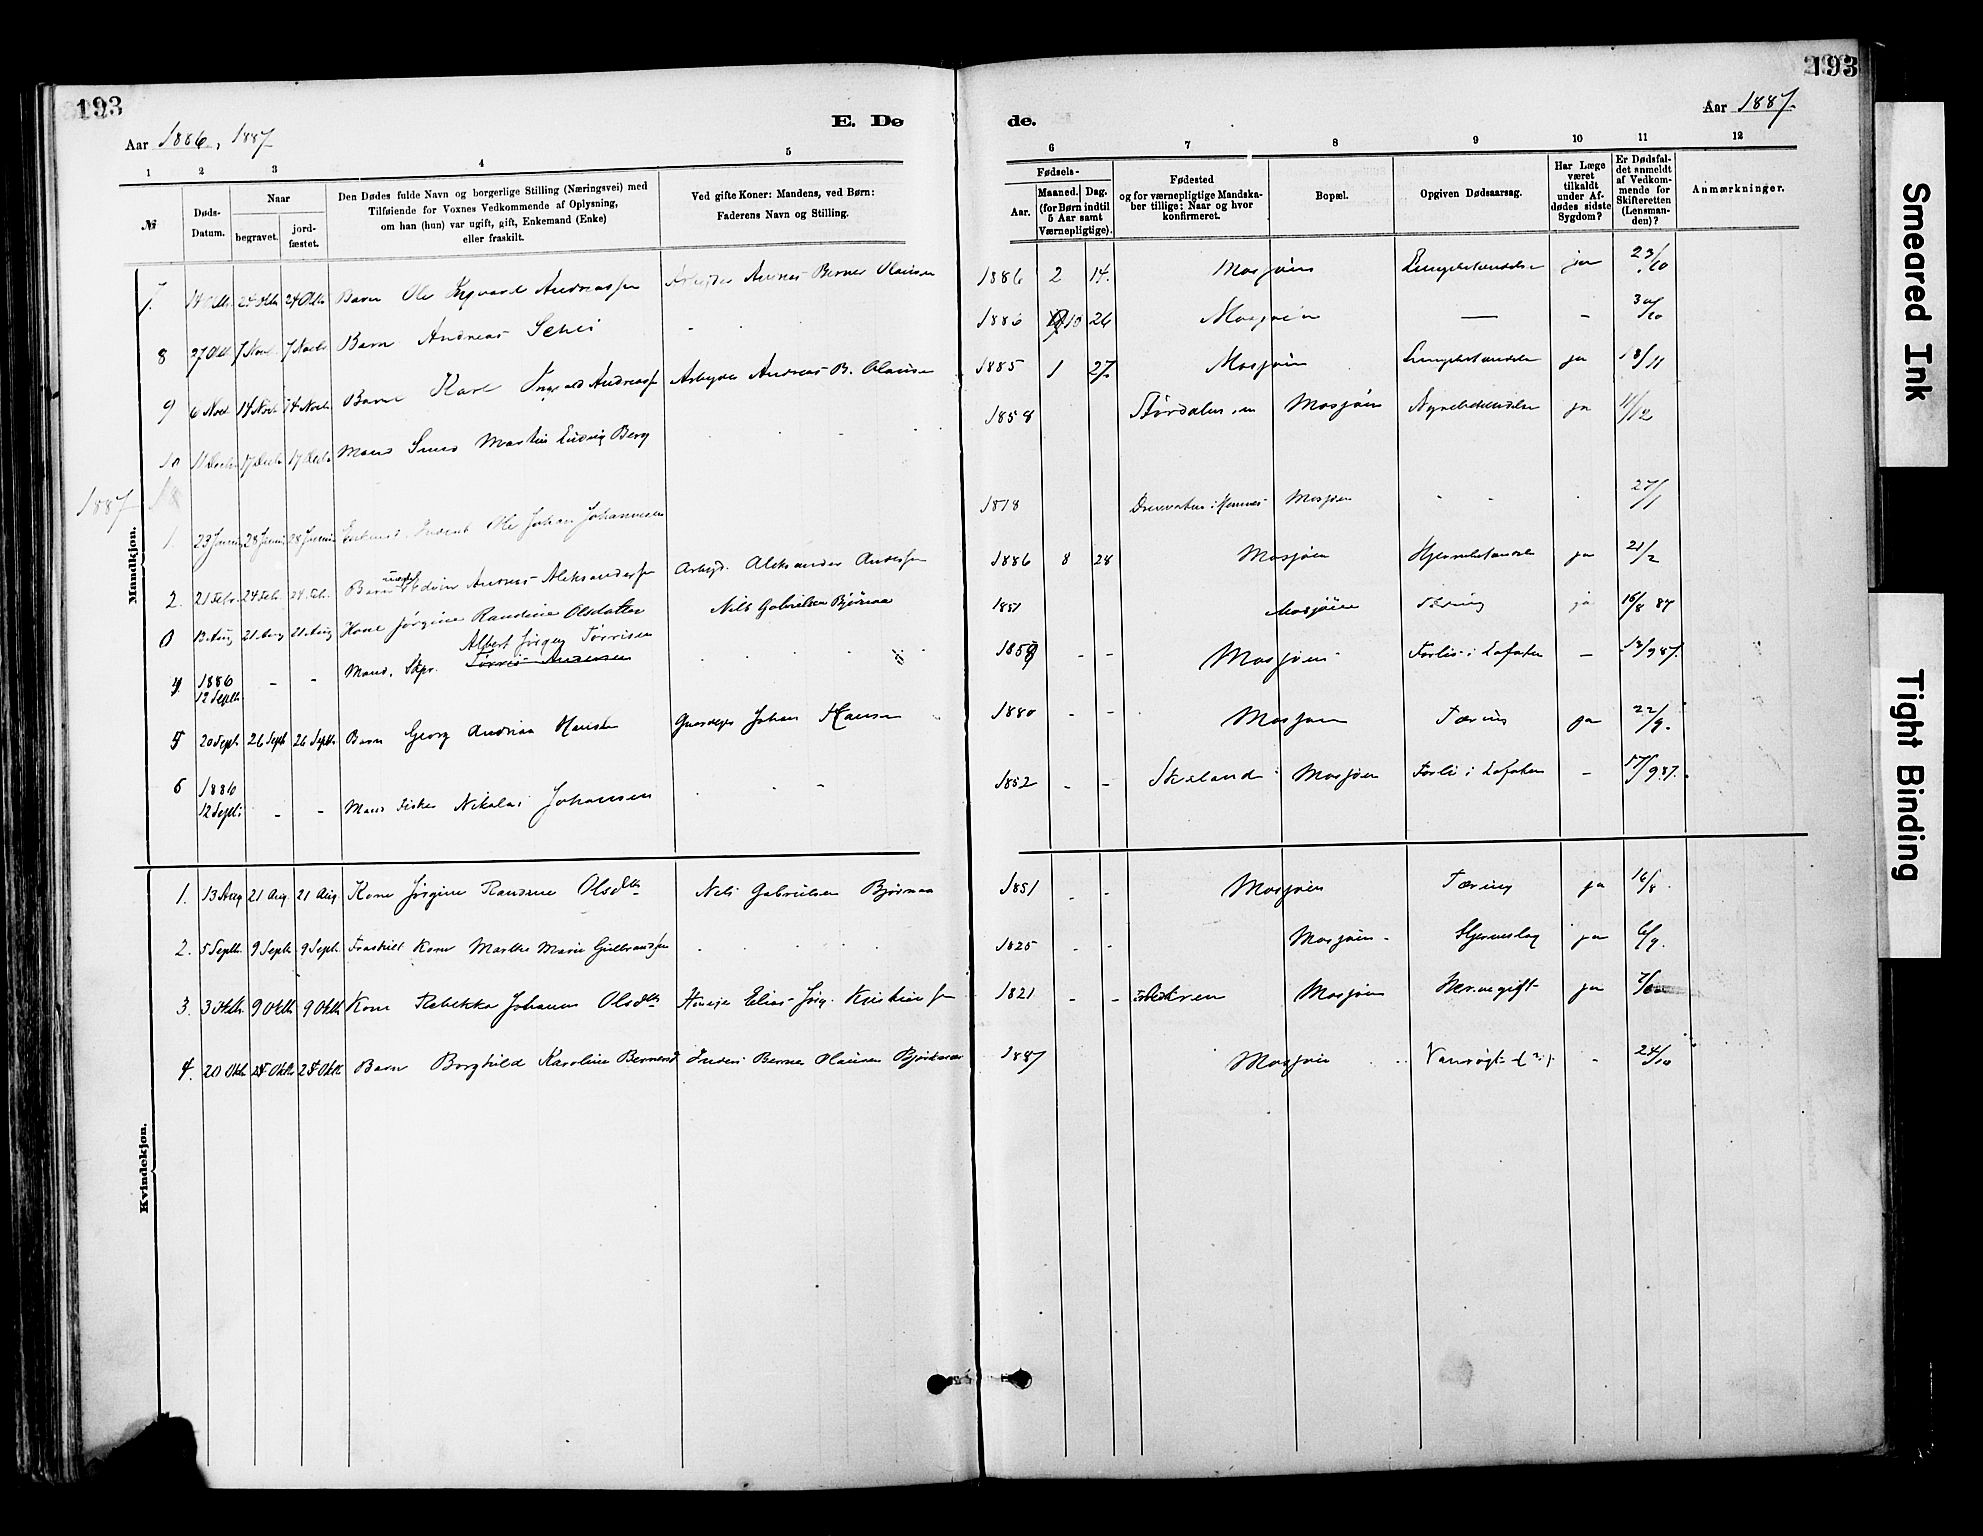 193
Aar 1886, 1887
E. De
1
2
3
4
5
№
Døds-
Datum.
Naar
begravet.
jord-
fæstet.
Den Dødes fulde Navn og borgerlige Stilling (Næringsvei) med
Tilføiende for Voxnes Vedkommende af Oplysning,
om han (hun) var ugift, gift, Enkemand (Enke)
eller fraskilt.
Ved gifte Koner: Mandens, ved Børn:
Faderens Navn og Stilling.
Mandkjøn.
7. 24 Oktb 24 Oktb Barn Ole Andreassen Andreas Berner Olausen
8 27 Okt 7 Novb 7 Novb Barn Andreas -
9 6 Novb 14 Novb 14 Novb Barn Karl Ingvald Andreass Arbeyder Andreas B. Olausen
10 11 Decb 17 Decb 17 Decb Mand Martin Ludvig Berg
1887
1. 23 Januar 28 Januar 28 Januar Ole Johan Johannesen
2. 21 Febr. 24 Febr. 24 Feb. Barn Edvin Andreas Aleksandersen Arbeyd. Aleksander Andersen
13 Aug 21 Aug 21 Aug Kone Jørgine Randine Olsdatter Nils Gabrielsen Bjørnaa
Albert Jørgen Tørrisen
4 1886 - - Mand, Skpr. Tørris Andersen
12 Septb
5 20 Sept. 26 Septb 26 Septb. Barn Georg Andreas Hansen Johan Hansen
6 1886
12 Septb. - - Mand Fisker Nikolai Johansen
Kvindekjøn.
1. 13 Aug 21 Aug. 21 Aug. Kone Jørgine Randine Olsdtr Nils Gabrielsen Bjørnaa
2. 5 Septb. 9 Septb 9 Septb. Fraskilt Kone Marthe Marie Gulbrandsen
3. 3 Oktb. 9 Oktb 9 Oktb Kone Rebekka Johanna Olsdtr Elias Jørg. Kristiansen
4. 20 Oktb 24 Oktb 24 Oktb. Barn Borghild Karoline Bernersd Inders Berner Olausen
193
Aar 1887.
de.
6
7
8
9
10
11
12
Fødsels-
Aar.
Maaned. Dag.
(for Børn indtil
5 Aar samt
Værnepligtige).
Fødested
og for værnepligtige Mandska-
ber tillige: Naar og hvor
konfirmeret.
Bopæl.
Opgiven Dødsaarsag.
Har Læge
været
tilkaldt
under Af-
dødes sidste
Sygdom?
Er Dødsfal-
det anmeldt
af Vedkom-
mende for
Skifteretten
(Lensman-
den)?
Anmærkninger.
1886 2 14. Mosjøen Lungebetændelse ja 23/10
1886 10 26 Mosjøen — - 30/10
1885 1 27. Mosjøen Lungebetændelse ja 18/11
1858 Størdalen Mosjøen Nyrebetændelse ja 11/12
1818 Mosjøen 27/1
1886 8 28 Mosjøen Hjernebetændelse ja 21/2
1851 Mosjøen Tæring ja 16/8 87
1859 - - Mosjøen Forlis i Lofoten - 13/9 87.
1880 - - Mosjøen Tæring ja 22/9.
1852 - - Mosjøen Forlis i Lofoten - 17/9 87.
1851 - - Mosjøen Tæring ja 16/8.
1825 - - Mosjøen - Hjerneslag ja 6/9.
1821 - - Mosjøen ja
1887 Mosjøen Vanrøgt (?) - 24/10
Smeared Ink
Tight Binding